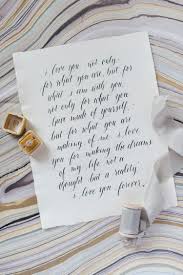 i love you not only
for what you are, but for
what i am with you.
not only for what you
have made of yourself,
but for what you are
making of me. i love
you for making the dreams
of my life not a
thought but a reality.
i love you forever.